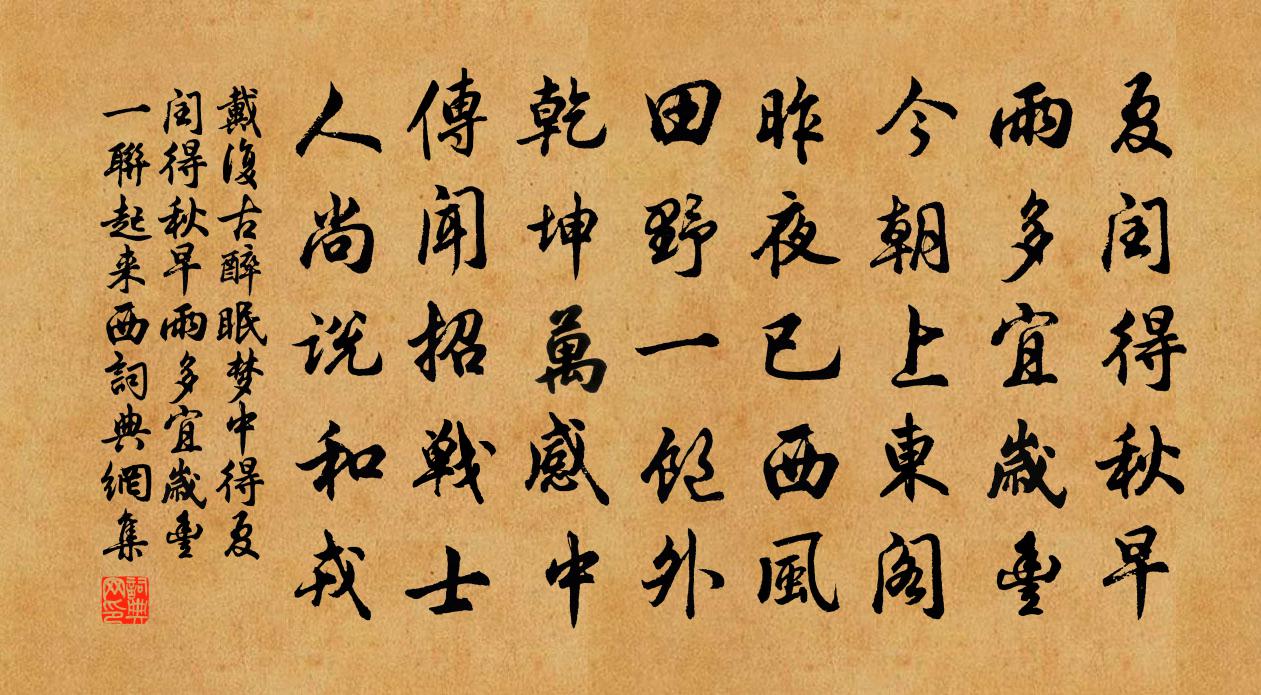 夏閏得秋早
雨多宜歲豐
今朝上東閣
昨夜已西風
田野一飽外
乾坤萬感中
傳聞招戰士
人尚說和戎
戴復古醉眠梦中得夏
閏得秋早雨多宜歲豐
一聯起来西詞典網集
詞典
网印